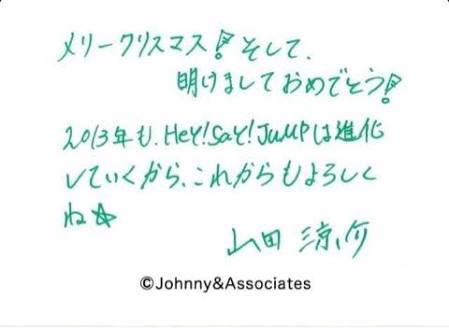 メリークリスマス!そして、
明けましておめでとう!
2013年も、Hey!Say!JUMPは進化
していくから、これからもよろしく
ね☆
山田涼介
©Johnny&Associates